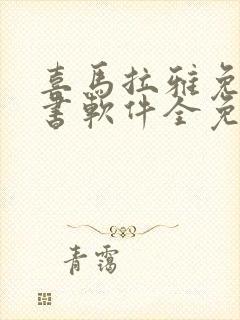 喜马拉雅免
书软件全免
青霭